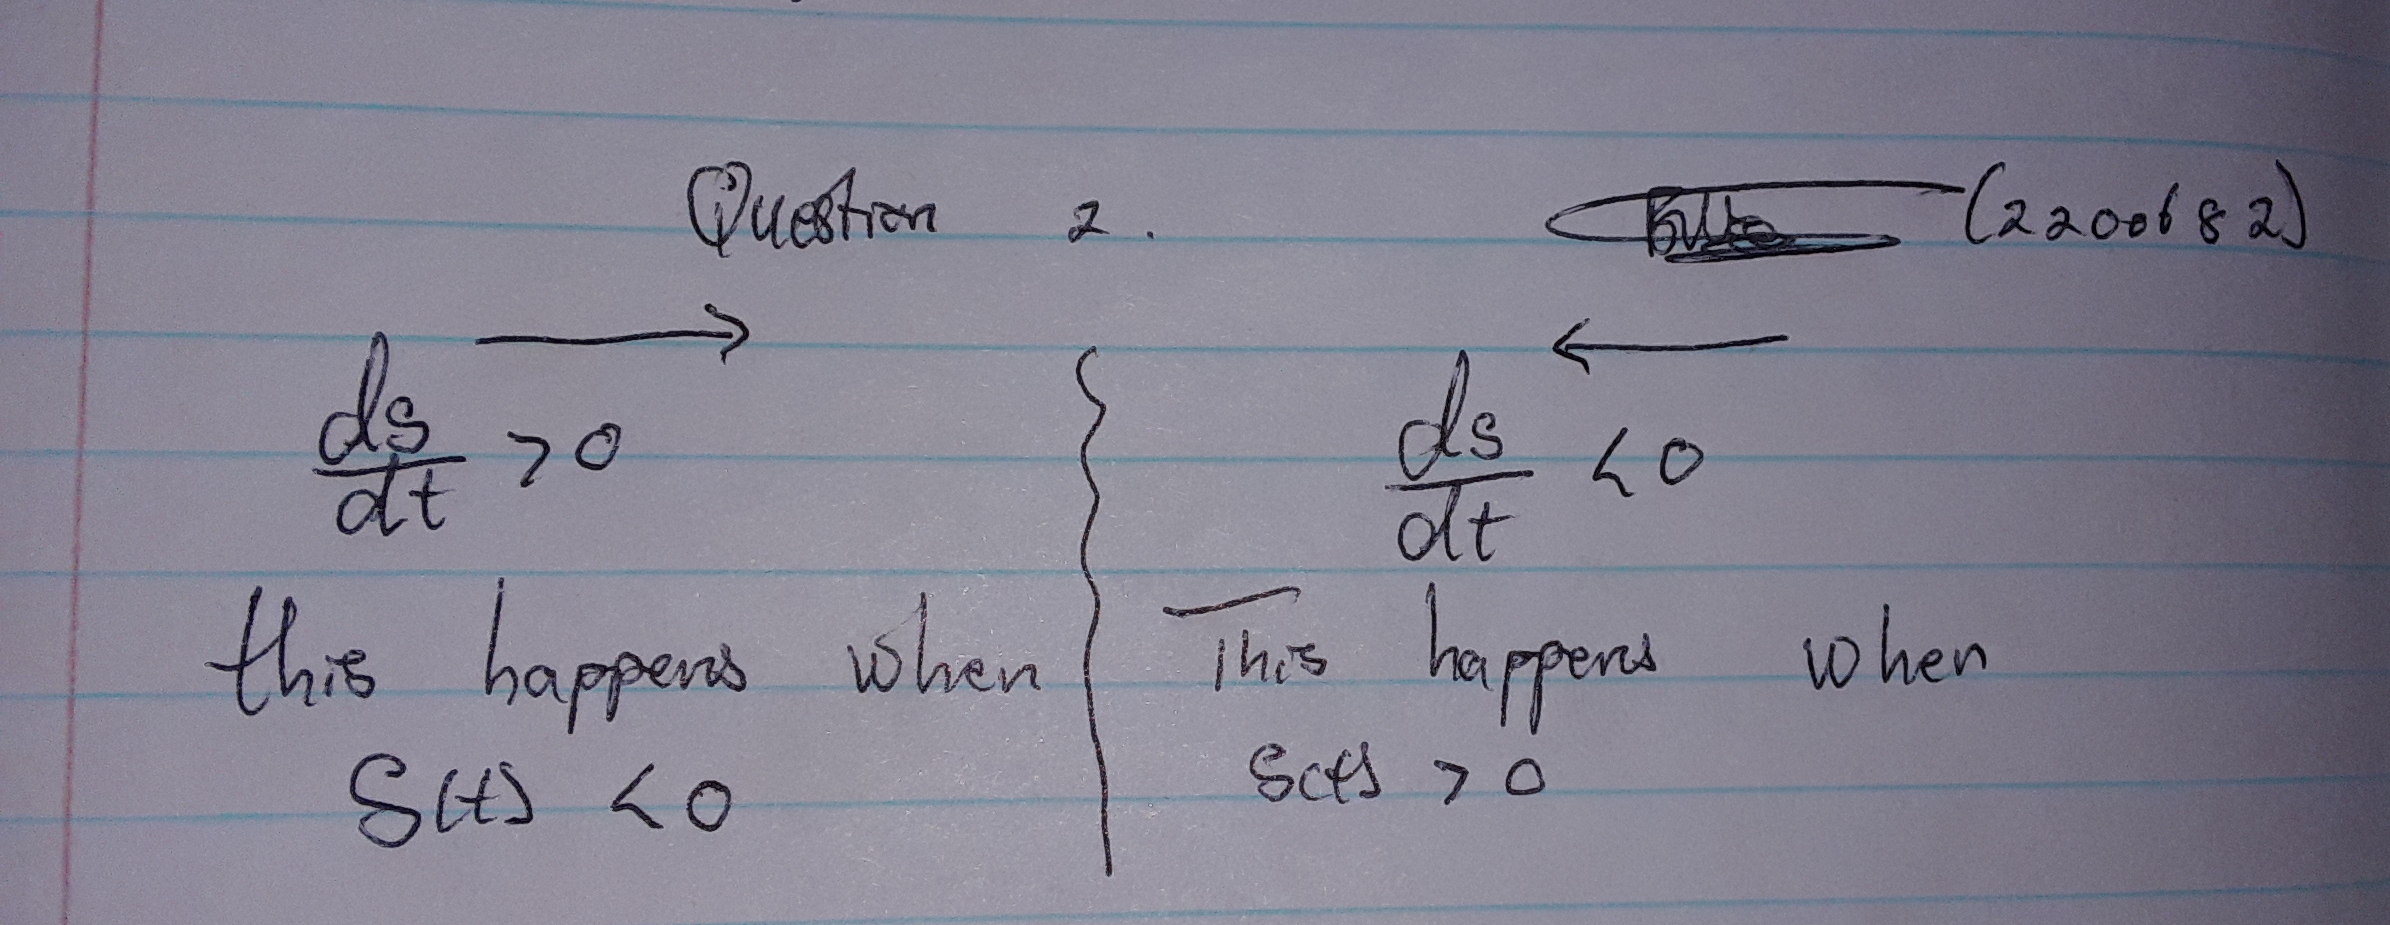 Question 2. (2200682)
ds/dt >0
this happens when
S(t) <0
ds/dt <0
This happens when
S(t) >0